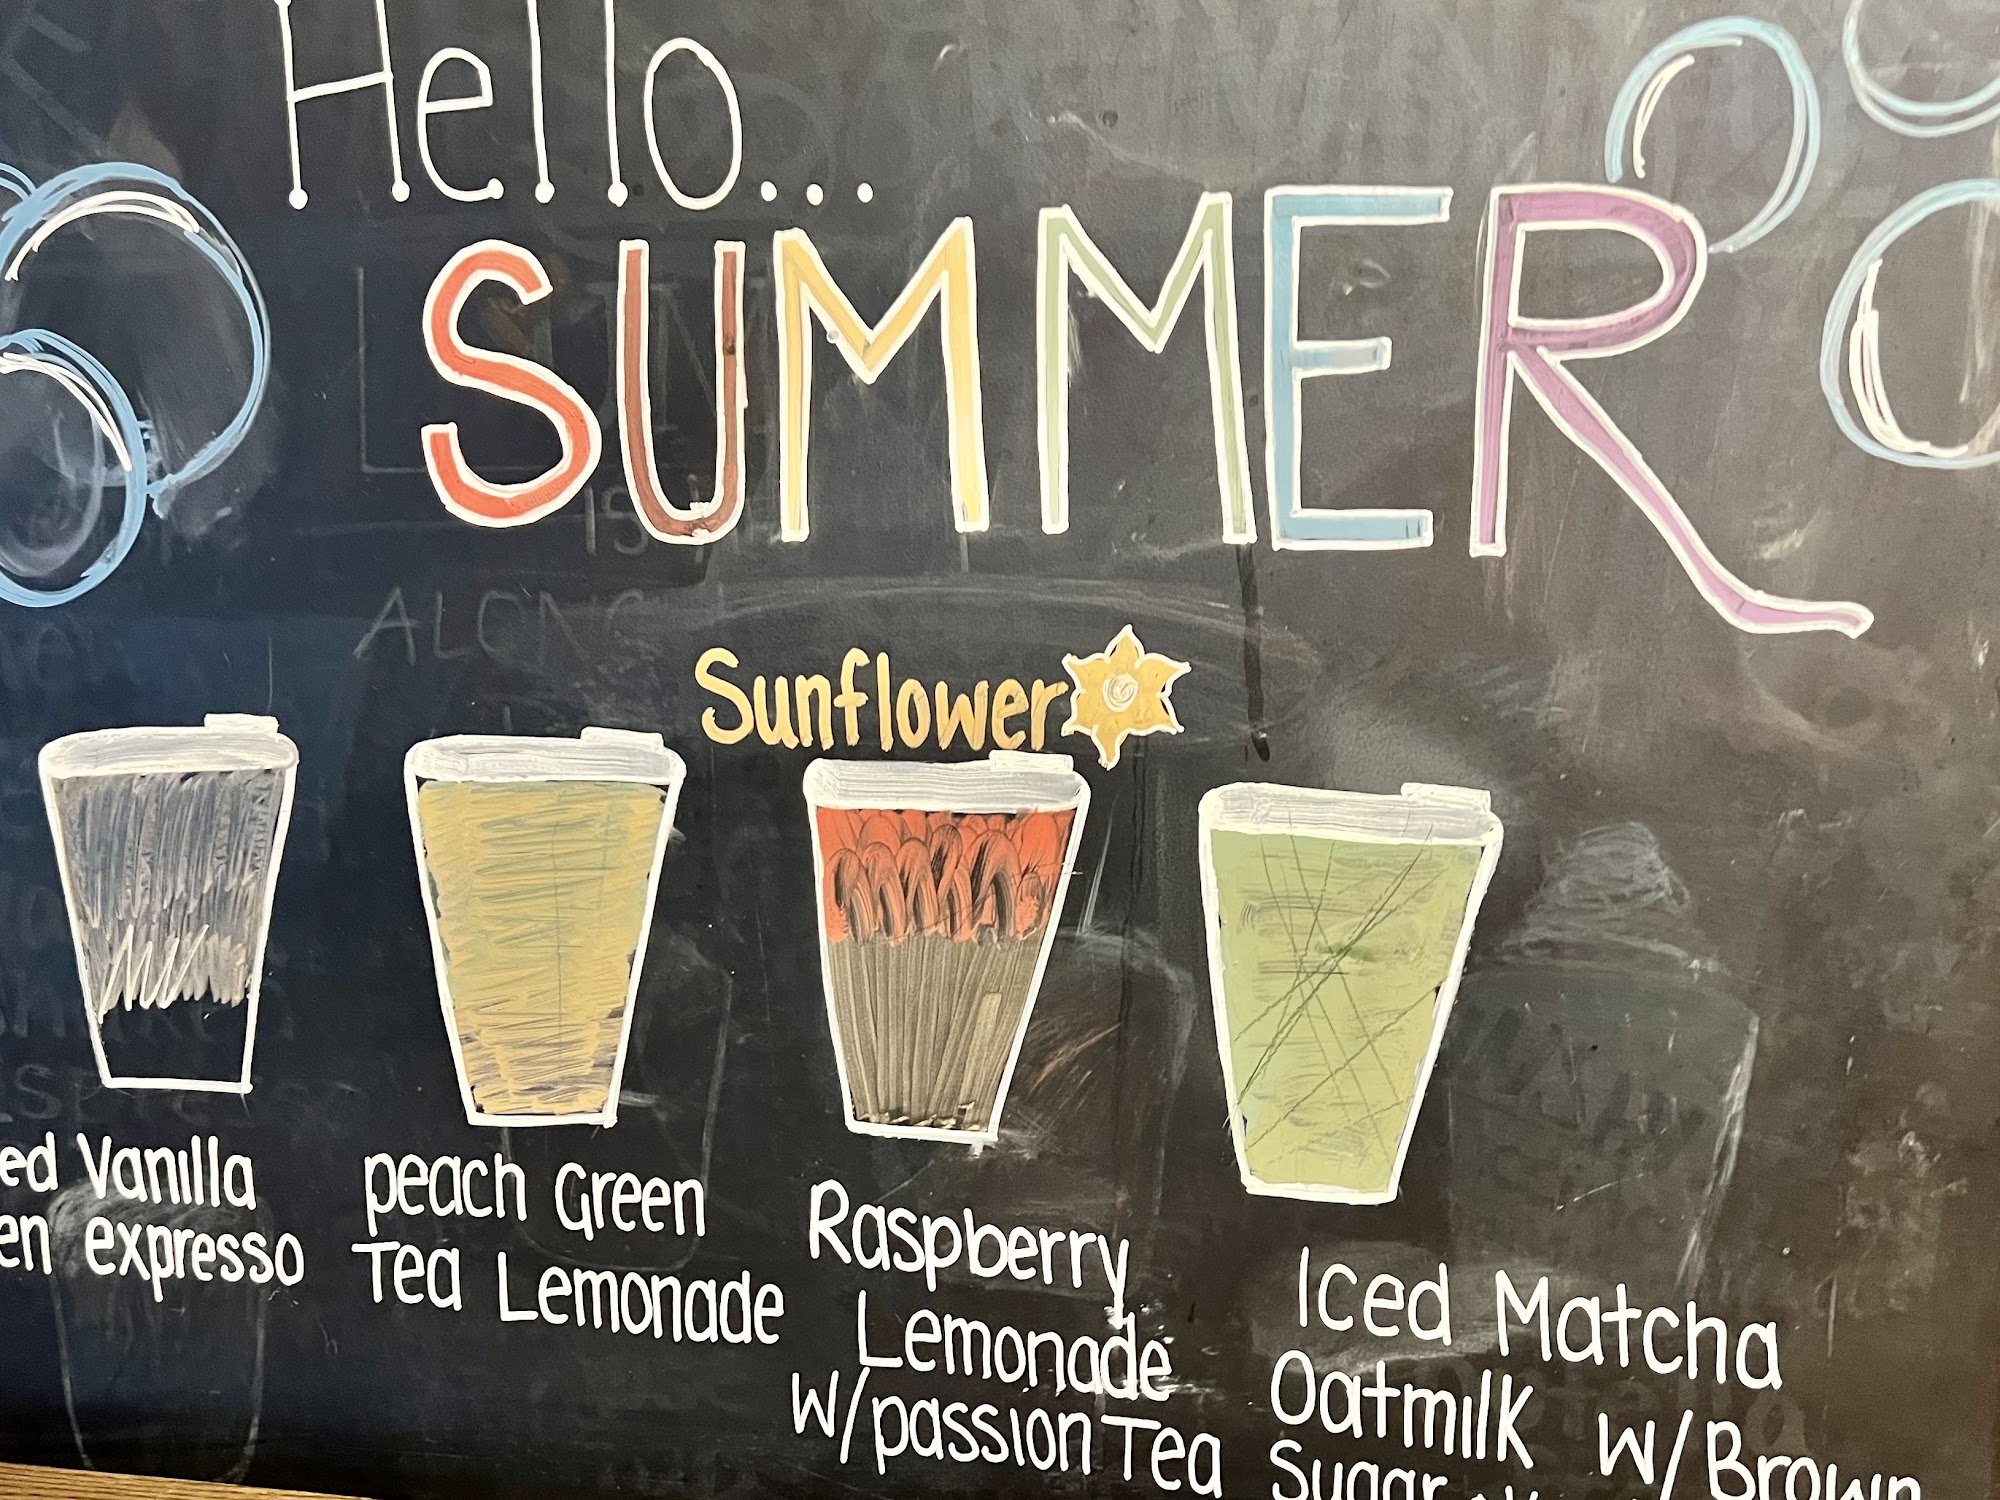 Hello...
SUMMER
Sunflower
ed Vanilla
en expresso
peach Green
Tea Lemonade
Raspberry
Lemonade
W/passion Tea
Iced Matcha
Oatmilk W/Brown
Sugar